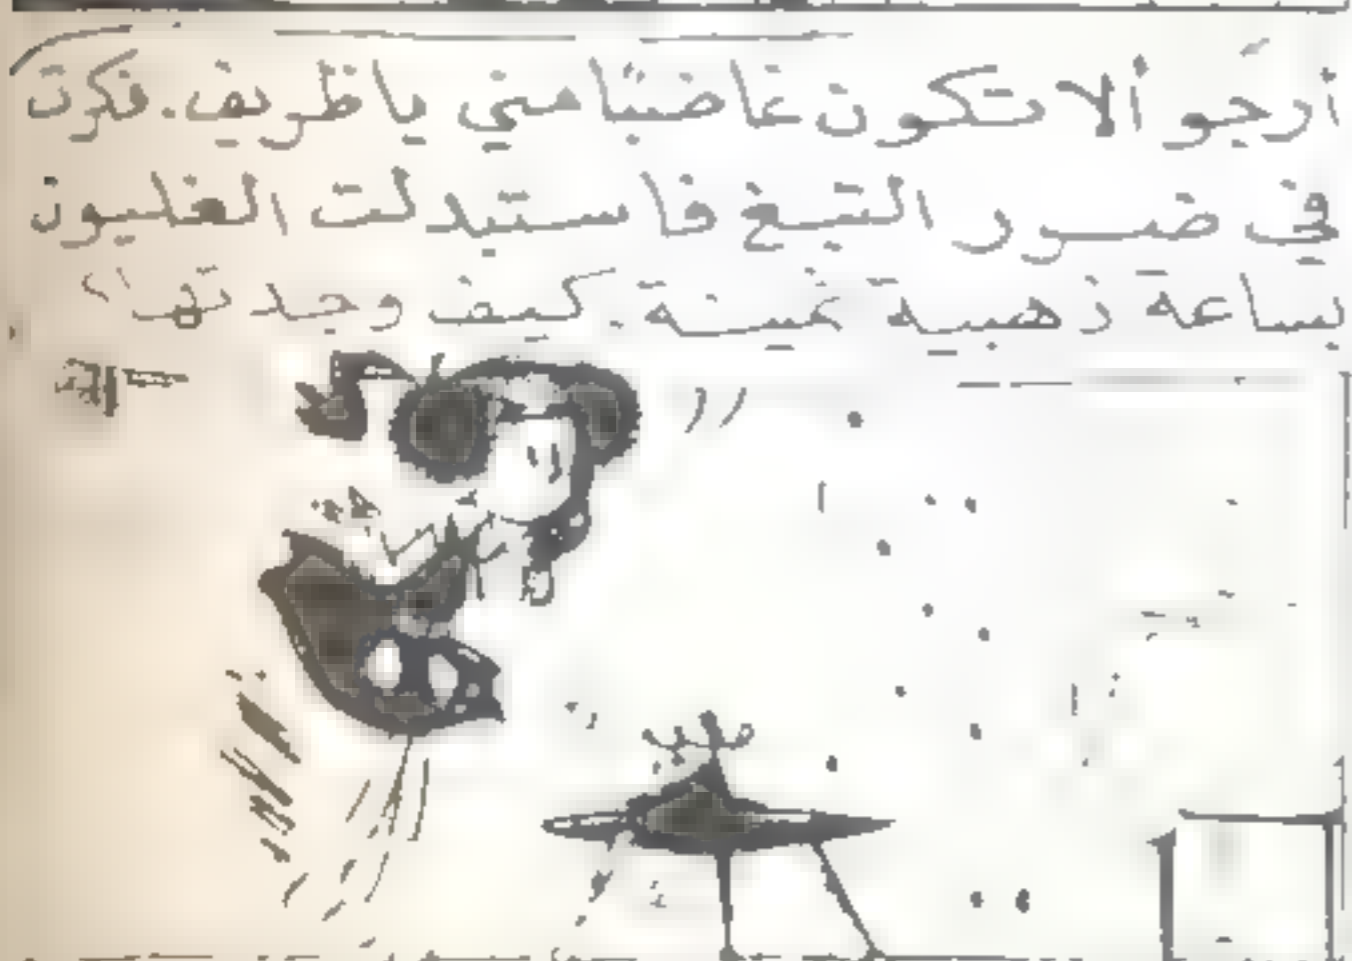 أرجو ألا تكون غاضبًا مني يا ظريف. فكرت
في ضرر التبغ فاستبدلت الغليون
بساعة ذهبية ثمينة. كيف وجدتها؟